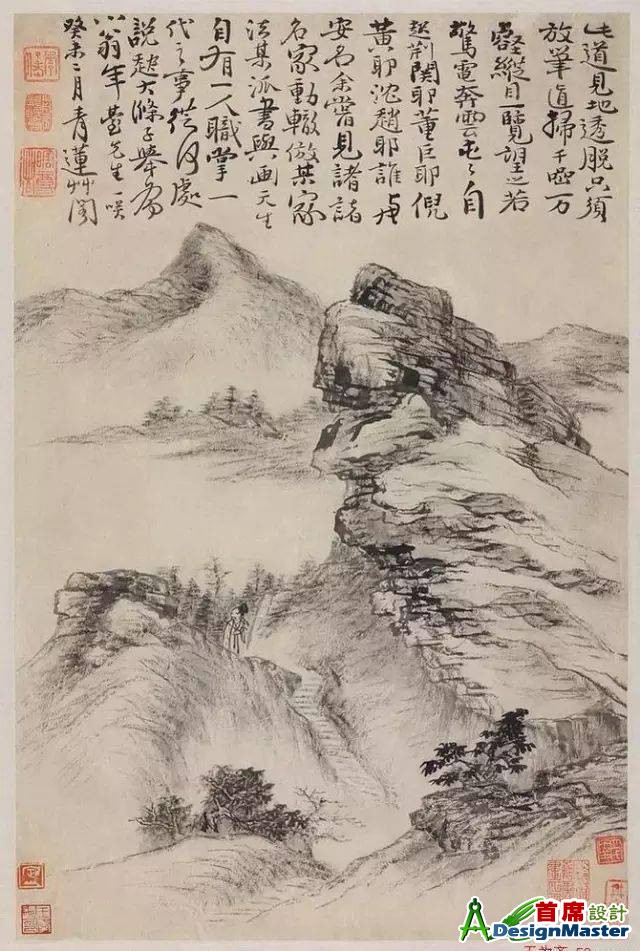 此道見地透脫只須
放筆直掃千巖万
壑縱目一覽望之若
驚電奔雲屯屯自
起荊關耶董巨耶倪
黃耶沈趙耶誰與
安名余嘗見諸諸
名家動輒倣某家
法某派書與画天生
自有一人職掌一
代之事從何處
說起大滌子舉為
小翁年臺先生一咲
癸未二月青蓮艸閣
首席設計
ADesignMaster